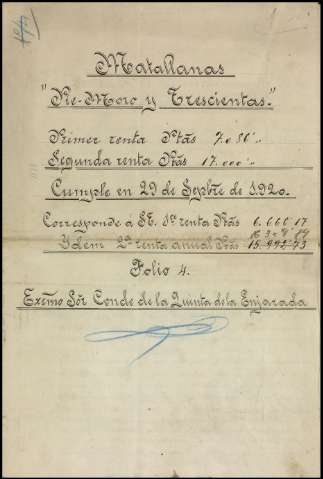 Matallanas
"Pie-Moro y Trescientas."
Primer renta Ptás 7.036 "
Segunda renta Ptás 17.000 "
Cumple en 29 de Sepbre de 1920.
Corresponde á St. 1ª renta Ptás 6.660 17
Ydem 2ª renta anual Ptás 15.992 73
Folio 4.
Excmo Sór Conde de la Quinta de la Enjarada